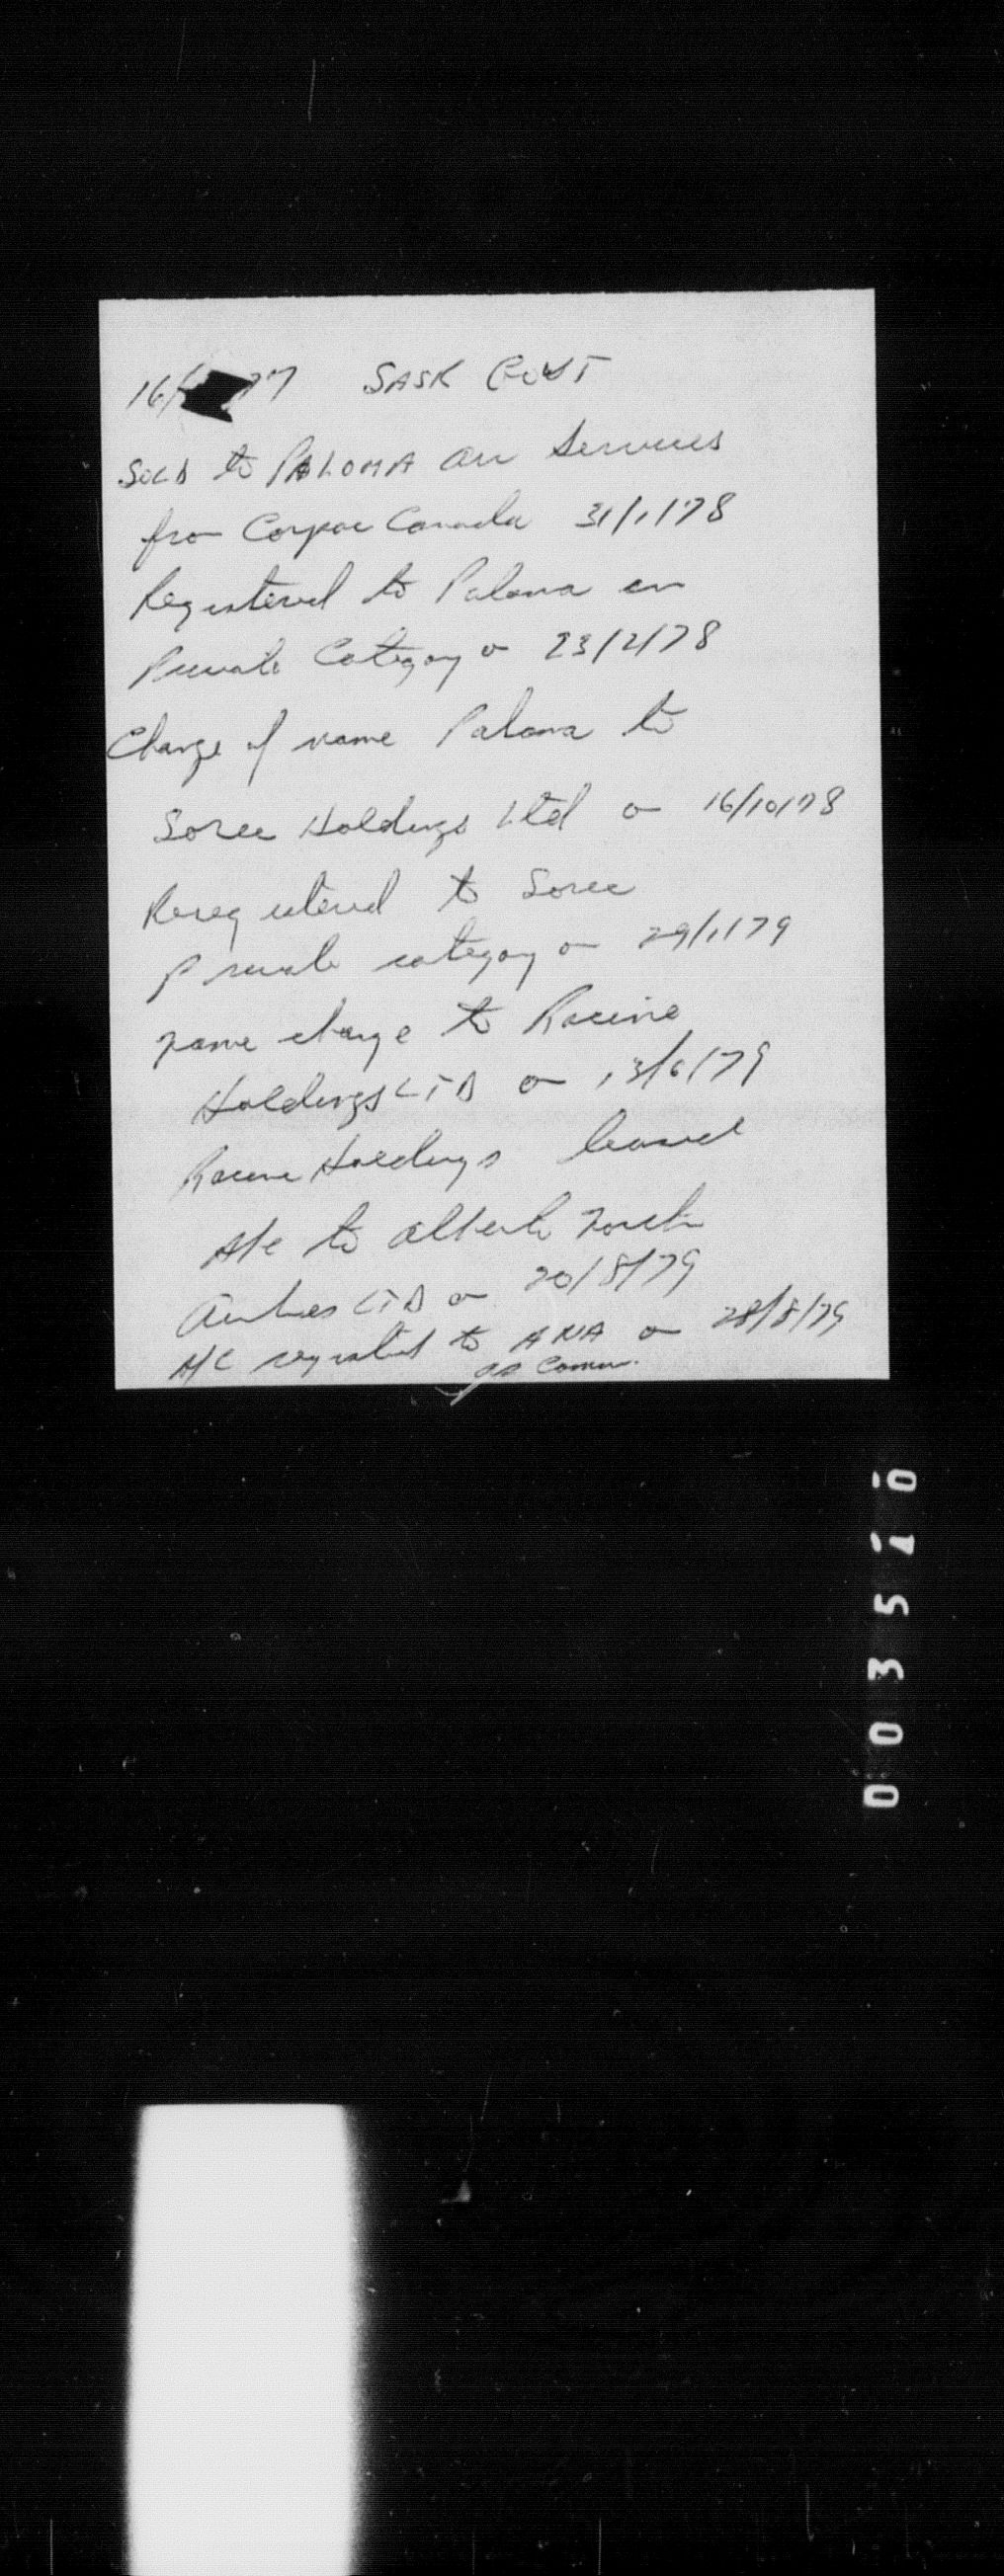 16/ 77 SASK GOVT
SOLD to PALOMA air Services
from Corpac Canada 31/1/78
Registered to Paloma in
Private Category on 23/2/78
Change of name Paloma to
Soree Holdings Ltd on 16/10/78
Reregistered to Soree
Private category on 29/1/79
name change to Racine
Holdings LTD on 13/6/79
Racine Holdings leased
A/c to Alberta North
Airlines LTD on 20/8/79
A/C registered to ANA on 28/8/79
as Comm.
003510